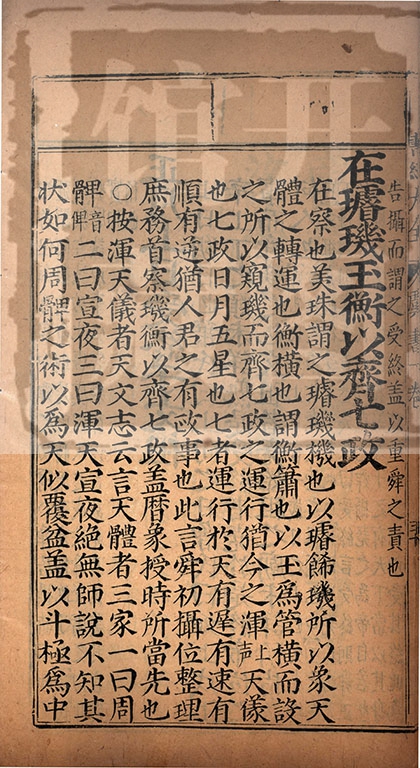 告攝而謂之受終盖以重舜之責也
在璿璣玉衡以齊七政
在察也美珠謂之璿璣機也以璿飾璣所以象天
體之轉運也衡橫也謂衡簫也以玉爲管橫而設
之所以窺璣而齊七政之運行猶今之渾上聲天儀
也七政日月五星也七者運行於天有遲有速有
順有逆猶人君之有政事也此言舜初攝位整理
庶務首察璣衡以齊七政盖曆象授時所當先也
○按渾天儀者天文志云言天體者三家一曰周
髀音俾二曰宣夜三曰渾天宣夜絶無師說不知其
狀如何周髀之術以爲天似覆盆盖以斗極爲中
开馆